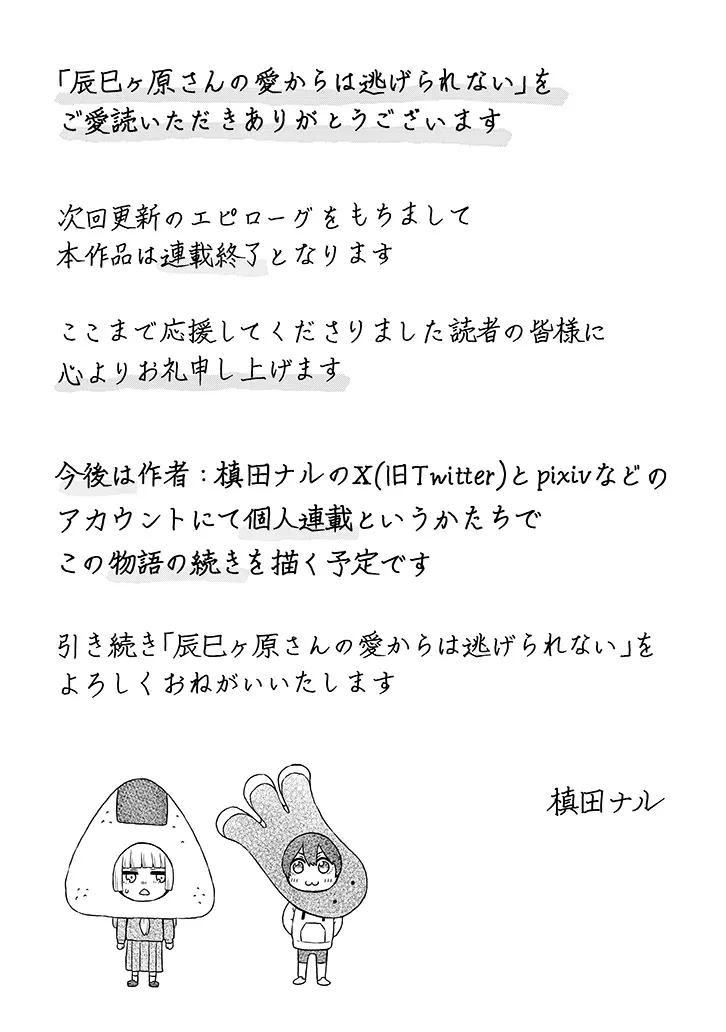 「辰巳ヶ原さんの愛からは逃げられない」を
ご愛読いただきありがとうございます
次回更新のエピローグをもちまして
本作品は連載終了となります
ここまで応援してくださりました読者の皆様に
心よりお礼申し上げます
今後は作者:槙田ナルのX(旧Twitter)とpixivなどの
アカウントにて個人連載というかたちで
この物語の続きを描く予定です
引き続き「辰巳ヶ原さんの愛からは逃げられない」を
よろしくおねがいいたします
槙田ナル